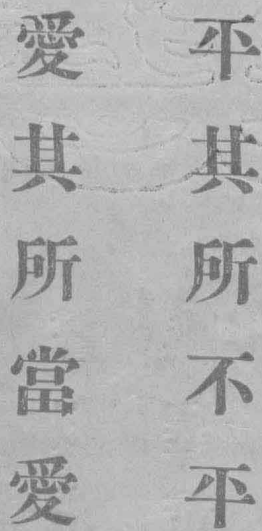 平其所不平
愛其所當愛